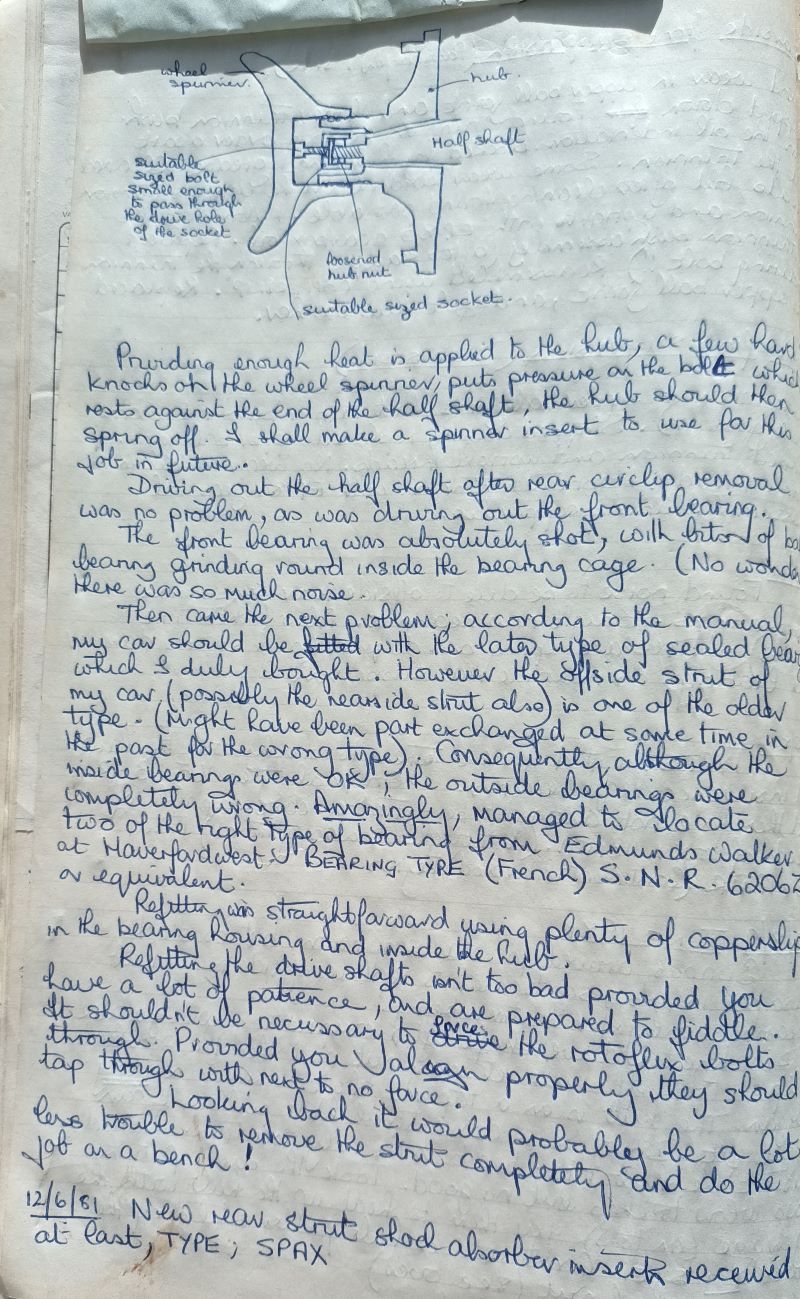 wheel
spinner.
hub.
Half shaft
suitable
sized bolt
small enough
to pass through
the drive hole
of the socket.
loosened
hub nut
suitable sized socket.
Providing enough heat is applied to the hub, a few hard
knocks on the wheel spinner, puts pressure on the bolt whic
rests against the end of the half shaft, the hub should then
spring off. I shall make a spinner insert to use for this
job in future.
Driving out the half shaft after rear circlip removal
was no problem, as was driving out the front bearing.
The front bearing was absolutely shot, with bits of ba
bearing grinding round inside the bearing cage. (No wonde
there was so much noise.
Then came the next problem; according to the manual,
my car should be fitted with the later type of sealed bear
which I duly bought. However the offside strut of
my car (possibly the nearside strut also) is one of the older
type. (Might have been part exchanged at some time in
the past for the wrong type). Consequently, although the
inside bearings were OK, the outside bearings were
completely wrong. Amazingly, managed to locate
two of the right type of bearing from Edmunds Walker
at Haverfordwest: BEARING TYPE (French) S.N.R. 6206Z
or equivalent.
Refitting was straightforward using plenty of copperslip
in the bearing housing and inside the hub.
Refitting the drive shafts isn't too bad provided you
have a lot of patience, and are prepared to fiddle.
It shouldn't be necussary to force the rotoflux bolts
through. Provided you align properly they should
tap through with next to no force.
Looking back it would probably be a lot
less trouble to remove the strut completely and do the
job on a bench!
12/6/81 New rear strut shock absorber inserts received
at last, TYPE; SPAX